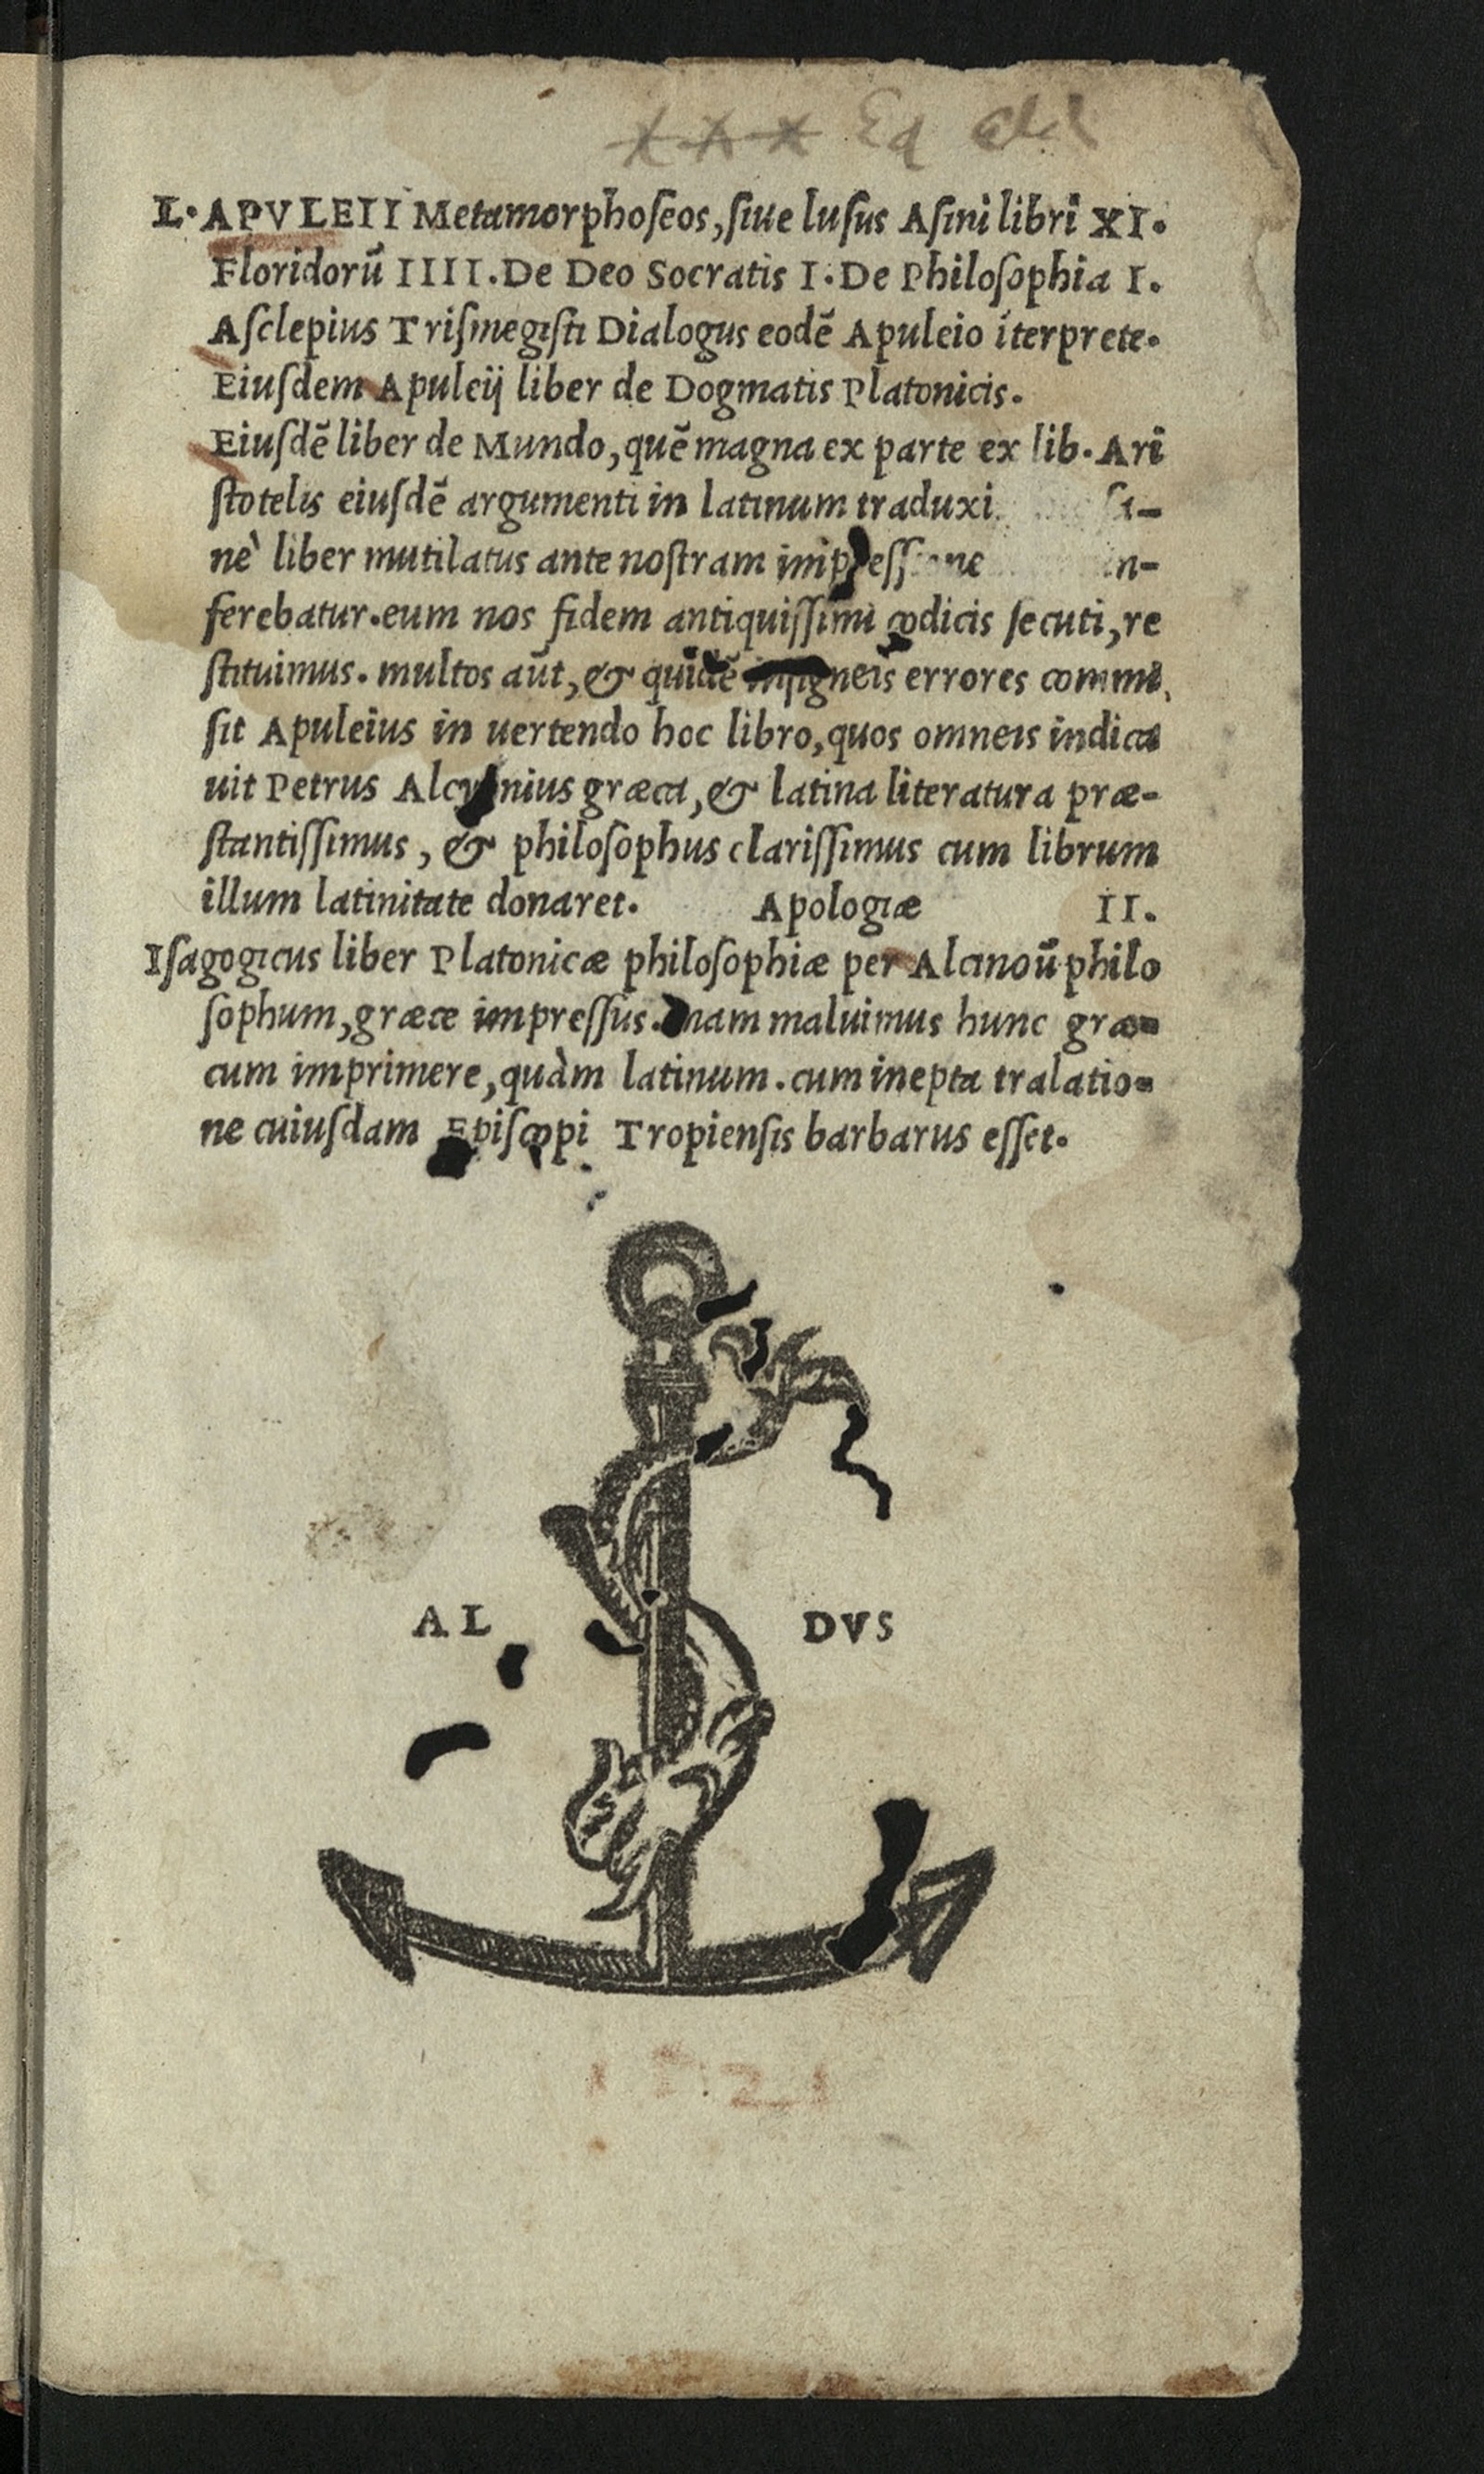 L. APVLEII Metamorphoseos, siue lusus Asini libri XI.
Floridorū IIII. De Deo Socratis I. De Philosophia I.
Asclepius Trismegisti Dialogus eodē Apuleio īterprete.
Eiusdem Apuleij liber de Dogmatis Platonicis.
Eiusdē liber de Mundo, quē magna ex parte ex lib. Ari
stotelis eiusdē argumenti in latinum traduxi sa-
nè liber mutilatus ante nostram
ferebatur. eum nos fidem antiquissimi codicis secuti, re
stituimus. multos aūt, & quidē insigneis errores commi
sit Apuleius in uertendo hoc libro, quos omneis indica
uit Petrus Alcyonius græca, & latina literatura præ-
stantissimus, & philosophus clarissimus cum librum
illum latinitate donaret. Apologiæ II.
Isagogicus liber Platonicæ philosophiæ per Alcinoū philo
sophum, græce impressus. nam maluimus hunc græ-
cum imprimere, quàm latinum. cum inepta tralatio-
ne cuiusdam Episcopi Tropiensis barbarus esset.
AL DVS